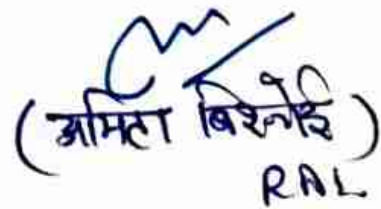 (अमिता बिश्नोई)
RAL